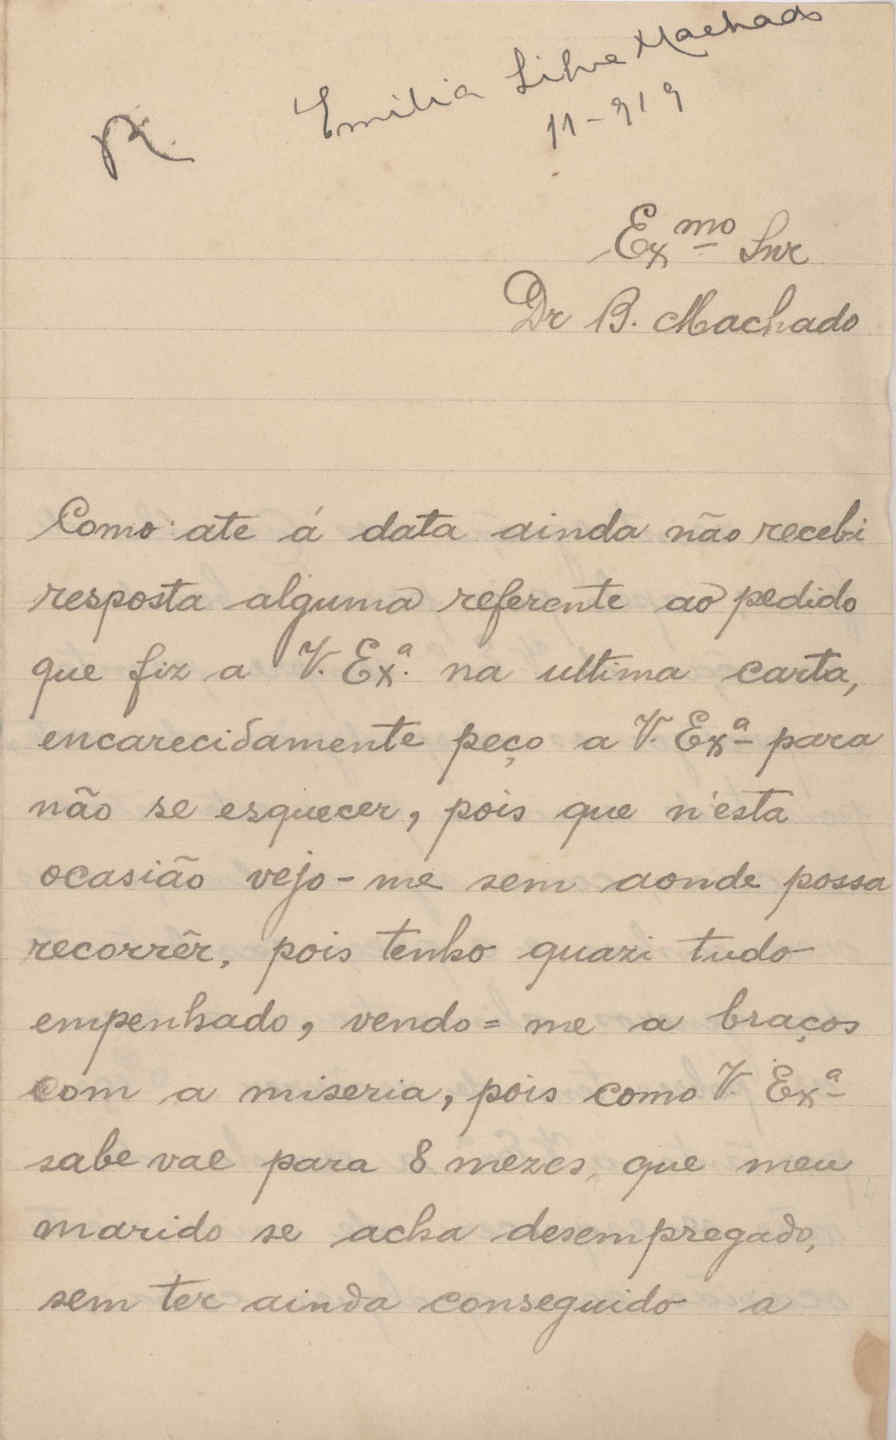 R.
Emilia Silva Machado
11-919
Ex.mo Snr
Dr B. Machado
Como ate á data ainda não recebi
resposta alguma referente ao pedido
que fiz a V. Ex.ª na ultima carta,
encarecidamente peço a V. Exª para
não se esquecer, pois que n'esta
ocasião vejo-me sem aonde possa
recorrêr, pois tenho quazi tudo
empenhado, vendo=me a braços
com a miseria, pois como V. Exª
sabe vae para 8 mezes, que meu
marido se acha desempregado,
sem ter ainda conseguido a